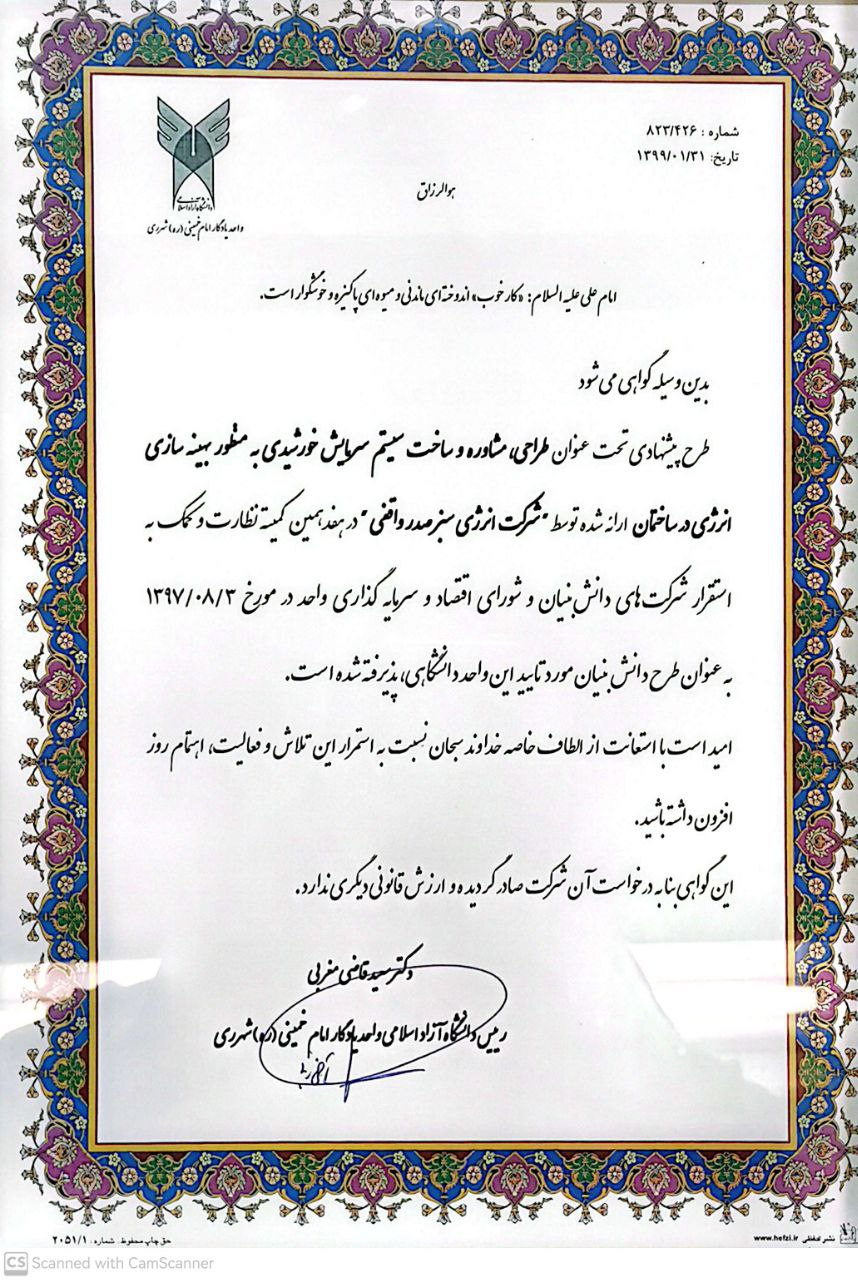 شماره : ۸۲۳/۴۲۶
تاریخ: ۱۳۹۹/۰۱/۳۱
دانشگاه آزاد اسلامی
واحد یادگار امام خمینی (ره) شهرری
هوالرزاق
امام علی علیه السلام: «کار خوب» اندوخته‌ای ماندنی و میوه‌ای پاکیزه و خوشگوار است.
بدین وسیله گواهی می شود
طرح پیشنهادی تحت عنوان طراحی، مشاوره و ساخت سیستم سرمایش خورشیدی به منظور بهینه سازی
انرژی در ساختمان ارائه شده توسط "شرکت انرژی سبز صدر واقفی" در هفدهمین کمیته نظارت و کمک به
استقرار شرکت های دانش بنیان و شورای اقتصاد و سرمایه گذاری واحد در مورخ ۱۳۹۷/۰۸/۳
به عنوان طرح دانش بنیان مورد تایید این واحد دانشگاهی، پذیرفته شده است.
امید است با استعانت از الطاف خاصه خداوند سبحان نسبت به استمرار این تلاش و فعالیت، اهتمام روز
افزون داشته باشید.
این گواهی بنا به درخواست آن شرکت صادر گردیده و ارزش قانونی دیگری ندارد.
دکتر سعید قاضی مغربی
رییس دانشگاه آزاد اسلامی واحد یادگار امام خمینی (ره) شهرری
حق چاپ محفوظ. شماره: ۲۰۵۱/۱
نشر حفظی www.hefzi.ir
CS Scanned with CamScanner